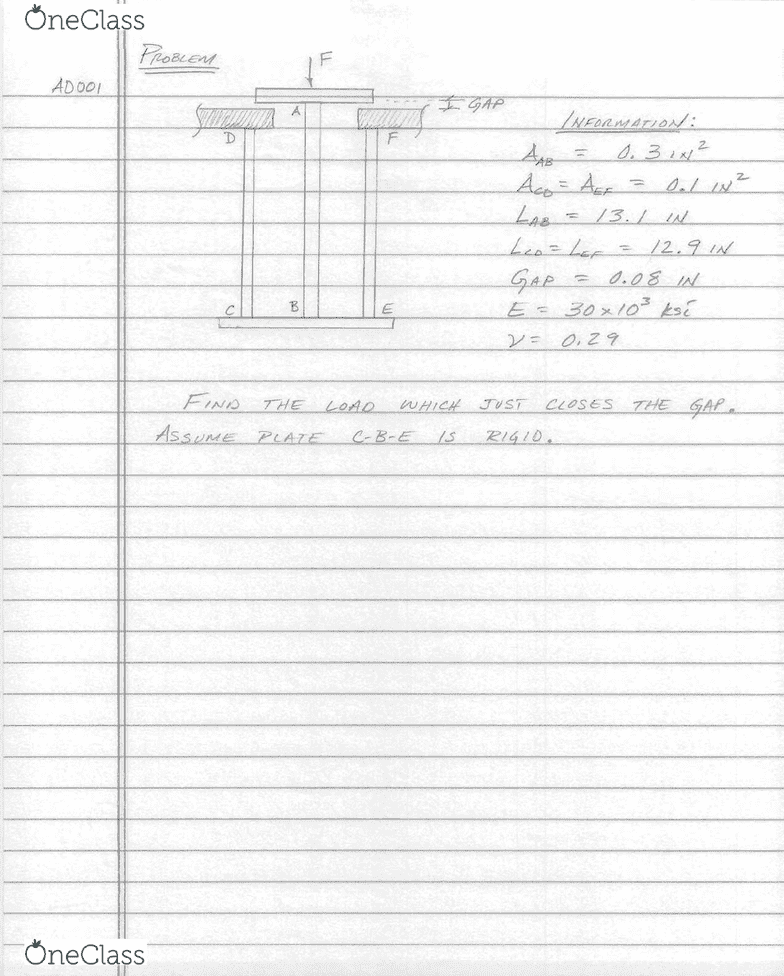 OneClass
PROBLEM
AD001
F
A
GAP
D
F
C
B
E
INFORMATION:
A_AB = 0.3 IN²
A_CD = A_EF = 0.1 IN²
L_AB = 13.1 IN
L_CD = L_EF = 12.9 IN
GAP = 0.08 IN
E = 30×10³ ksi
ν = 0.29
FIND THE LOAD WHICH JUST CLOSES THE GAP.
ASSUME PLATE C-B-E IS RIGID.
OneClass